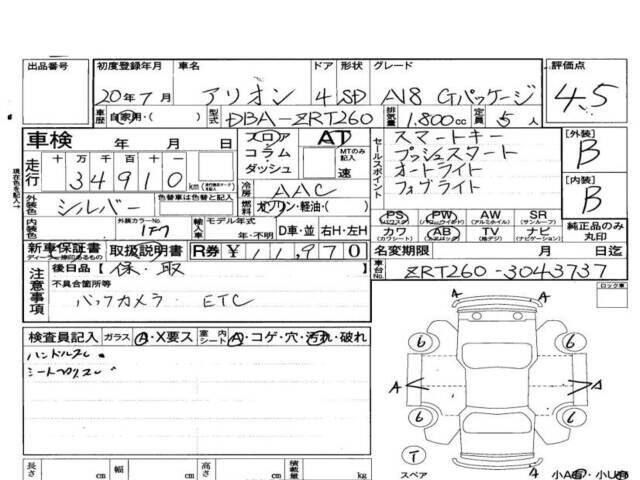 出品番号 初度登録年月 車名 ドア 形状 グレード 評価点
20年7月 アリオン 4 SD A18 Gパッケージ 4.5
車歴 自家用・( ) 型式 DBA-ZRT260 排気量 1.800cc 定員 5人
車検 年 月 日 フロア コラム ダッシュ AT MTのみ記入 速
セールスポイント スマートキー
プッシュスタート
オートライト
フォグライト
[外装] B
[内装] B
現在色を記入→
走行 十万 万 千 百 十 一
34910 km
冷房 AAC
外装色 シルバー 色替車は色替と記入 燃料 ガソリン・軽油・( )
内装色 外装カラーNo. 1F7 輸入車 モデル年式 年・不明 D車・並 右H・左H
PS (パワーステ) PW (パワーウインド) AW (アルミホイル) SR (サンルーフ)
カワ (カワシート) AB (エアバック) TV (純テレビ) ナビ (ナビゲーション)
純正品のみ丸印
新車保証書 取扱説明書 R券 ¥11,970 名変期限 月 日迄
注意事項 後日品 [保・取 ]
車台No. ZRT260-3043737
不具合箇所等
バックカメラ ETC
ロック車
検査員記入 ガラス A・X要ス 室内シート A・コゲ・穴・汚れ・破れ
A
6 6
A A
6 6
T
スペア
長さ cm 幅 cm 高さ cm 積載量 kg